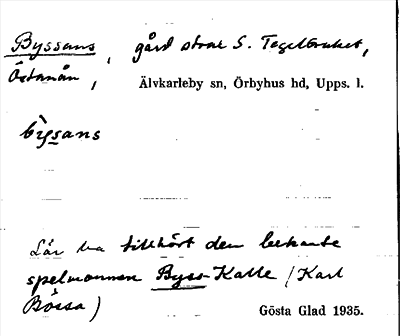 Byssans, gård strax S. Tegelbruket,
Östanån, Älvkarleby sn, Örbyhus hd, Upps. l.
by̆sans
Lär ha tillhört den bekante
spelmannen Byss-Kalle (Karl
Bössa)
Gösta Glad 1935.